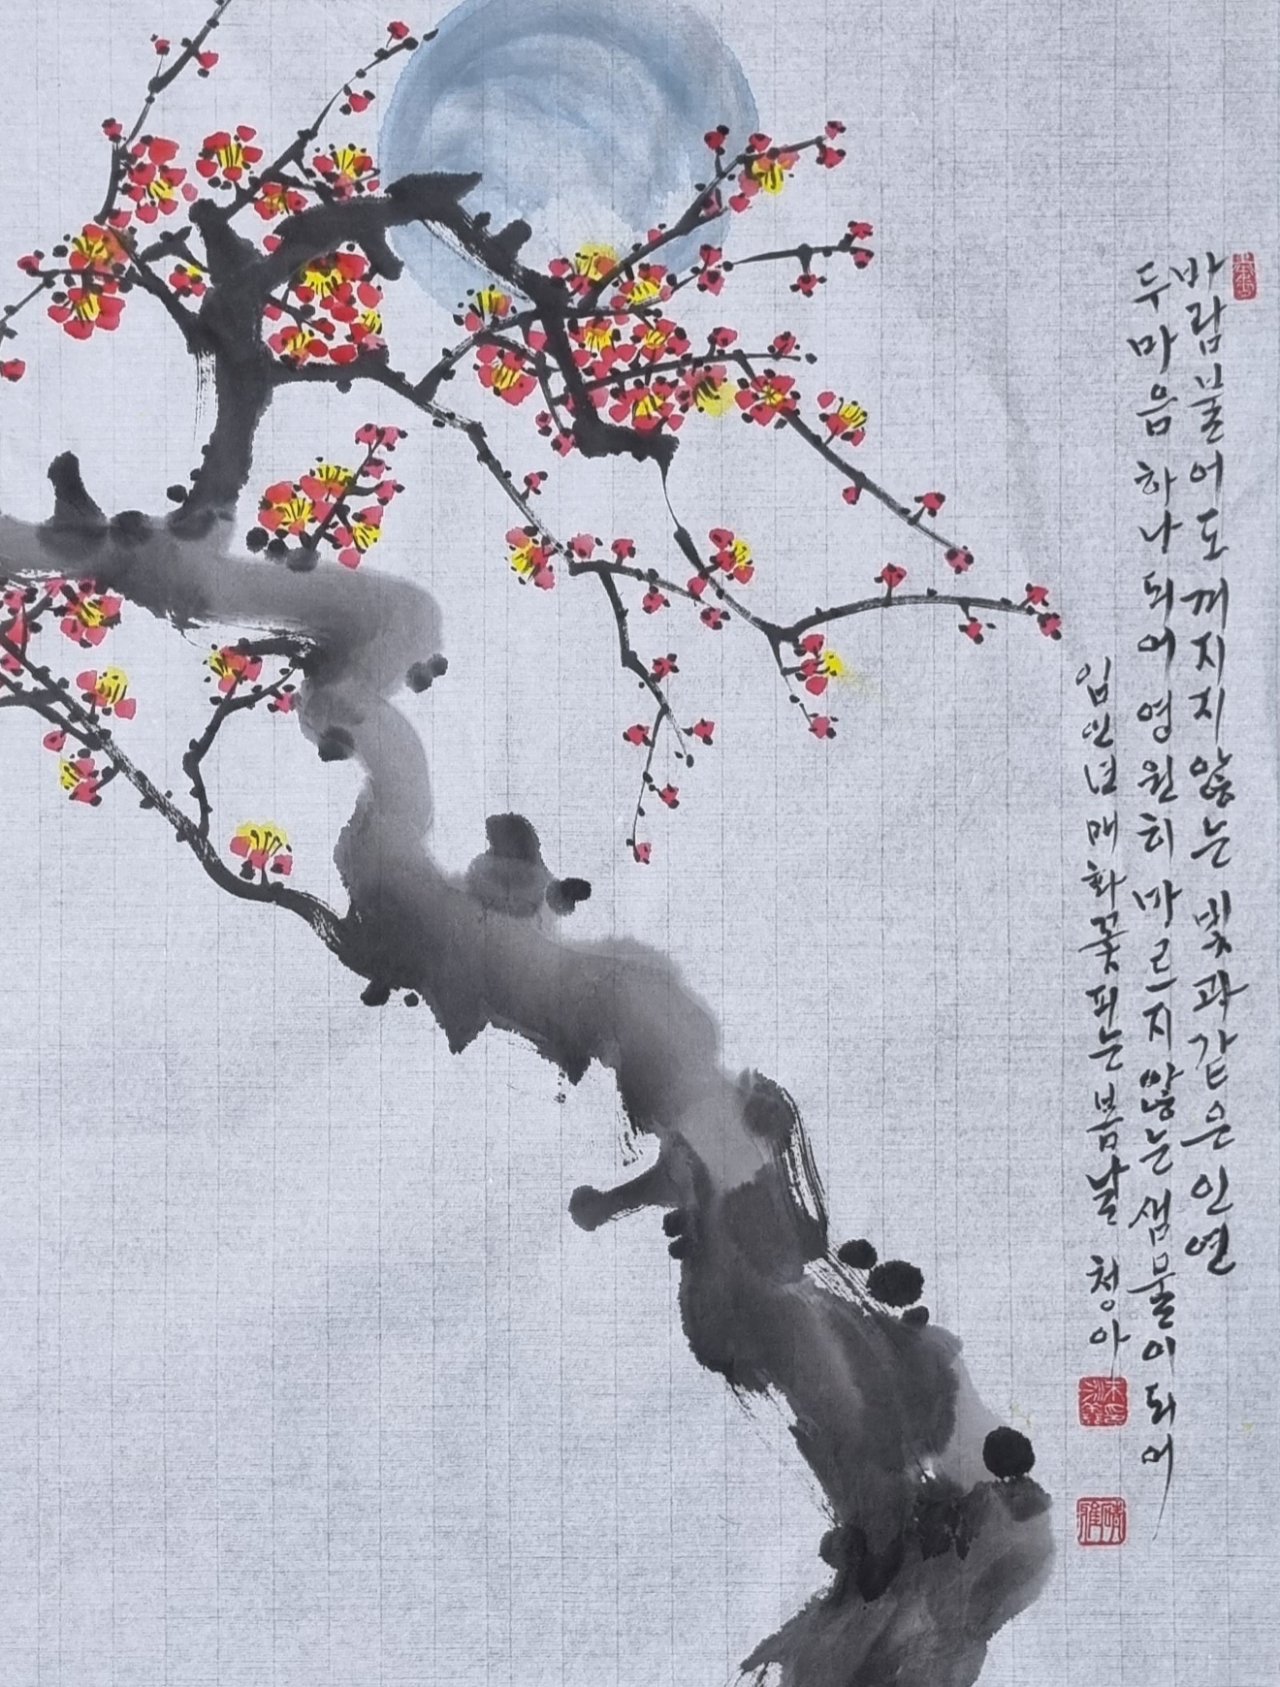 바람 불어도 꺼지지 않는 빛과 같은 인연
두 마음 하나되어 영원히 마르지 않는 샘물이 되어
임인년 매화꽃 피는 봄날 청아